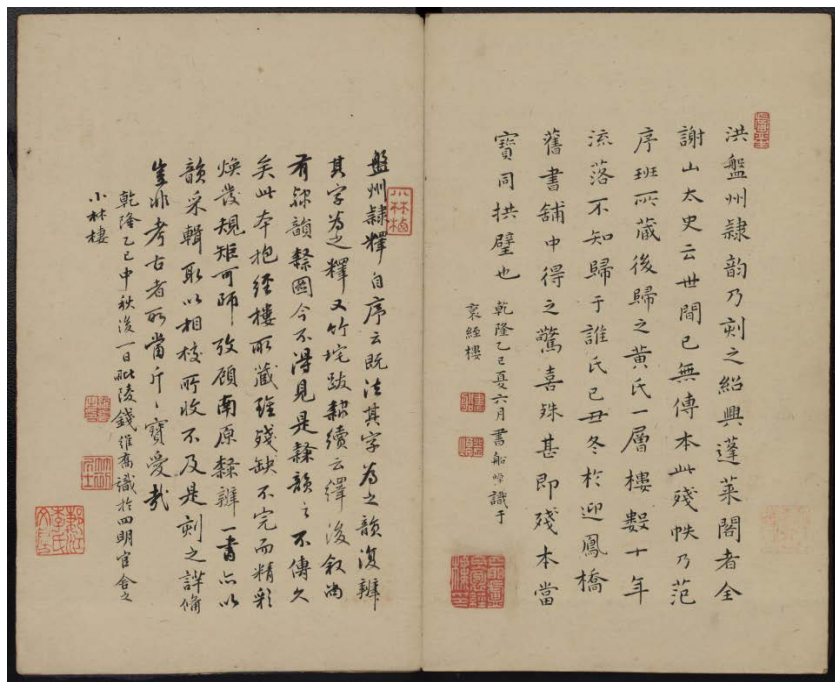 洪盤州隷韵乃刻之紹興蓬萊閣者全
謝山太史云世間已無傳本此殘帙乃范
序班所藏後歸之黄氏一層樓數十年
流落不知歸于誰氏已丑冬於迎鳳橋
舊書舖中得之驚喜殊甚即殘本當
寳同拱璧也
乾隆乙巳夏六月書船 識于
裛經樓
盤州隷釋自序云既法其字為之韻復辨
其字為之釋又竹垞跋隷續云繹後叙尚
有隷韻隷圖今不得見是隷韻之不傳久
矣此本抱經樓所藏雖殘缺不完而精彩
煥發規矩可師攷顧南原隷辨一書亦以
韻采輯取以相校所收不及是刻之詳備
豈非考古者所當斤〻寶愛哉
乾隆乙巳中秋後一日毗陵錢維喬識於四明官舍之
小林棲
小林棲